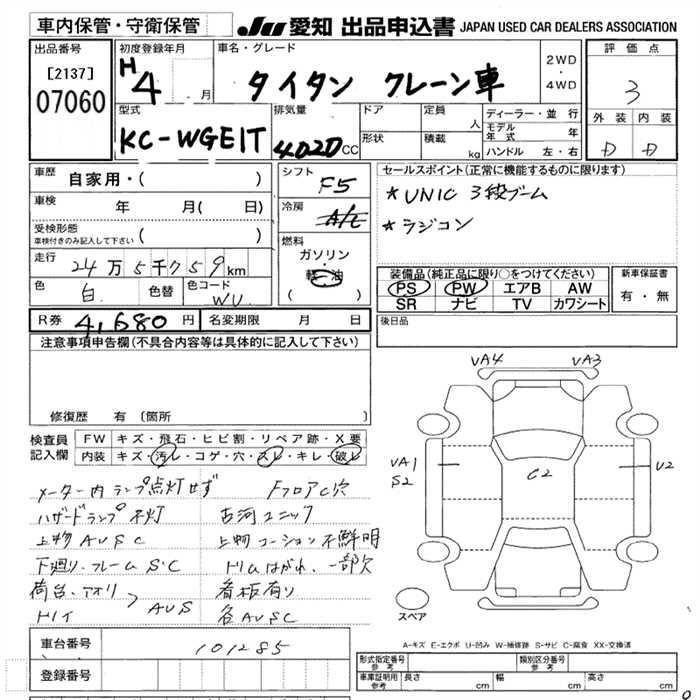 車内保管・守衛保管
JU 愛知 出品申込書 JAPAN USED CAR DEALERS ASSOCIATION
出品番号
[2137]
07060
初度登録年月
H 4 . 月
車名・グレード
タイタン クレーン車
2WD
・
4WD
評価点
3
外装 内装
D D
型式
KC-WGE1T
排気量
4020 CC
ドア
形状
定員 人
積載 kg
ディーラー・並行
モデル年式 年
ハンドル 左・右
車歴 自家用・( )
車検 年 月( 日)
受検形態
車検付きのみ記入して下さい ( )
走行 24万5千759km
色 白 色替 色コード WU
シフト F5
冷房 A/C
燃料
ガソリン
・
軽油
( )
セールスポイント(正常に機能するものに限ります)
*UNIC 3段ブーム
*ラジコン
装備品(純正品に限り○をつけてください)
PS PW エアB AW
SR ナビ TV カワシート
新車保証書
有・無
R券 4,680円 名変期限 月 日
後日品
注意事項申告欄(不具合内容等は具体的に記入して下さい)
修復歴 有 〔箇所
検査員記入欄
FW キズ・飛石・ヒビ割・リペア跡・X要
内装 キズ・汚レ・コゲ・穴・スレ・キレ・破レ
メーター内ランプ点灯せず Fフロアc穴
ハザードランプ不灯 古河ユニック
上物AUSC 上物コーション不鮮明
下廻り、フレームS・C ドリムはがれ、一部欠
荷台、アオリ 看板有り
トリイ AUS 各AUSC
VA4 VA3
VA1
S2
C2
U2
スペア
A-キズ E-エクボ U-凹み W-補修跡 S-サビ C-腐食 XX-交換済
車台番号 101285
登録番号
形式指定番号
参考
類別区分番号
参考
車庫証明用
参考
長さ cm 幅 cm 高さ cm